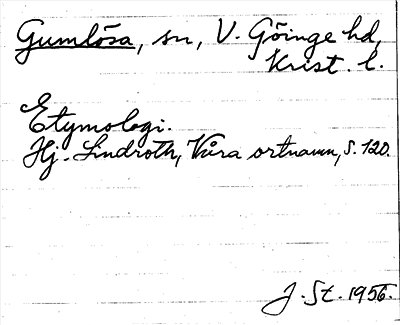 Gumlösa, sn, V. Göinge hd,
Krist. l.
Etymologi.
Hj. Lindroth, Våra ortnamn, s. 120.
J. St. 1956.